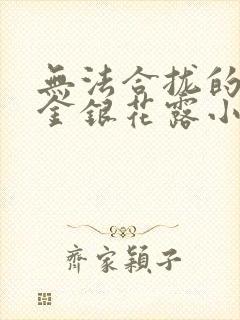 無法合拢的
金銀花露小
齊家穎子